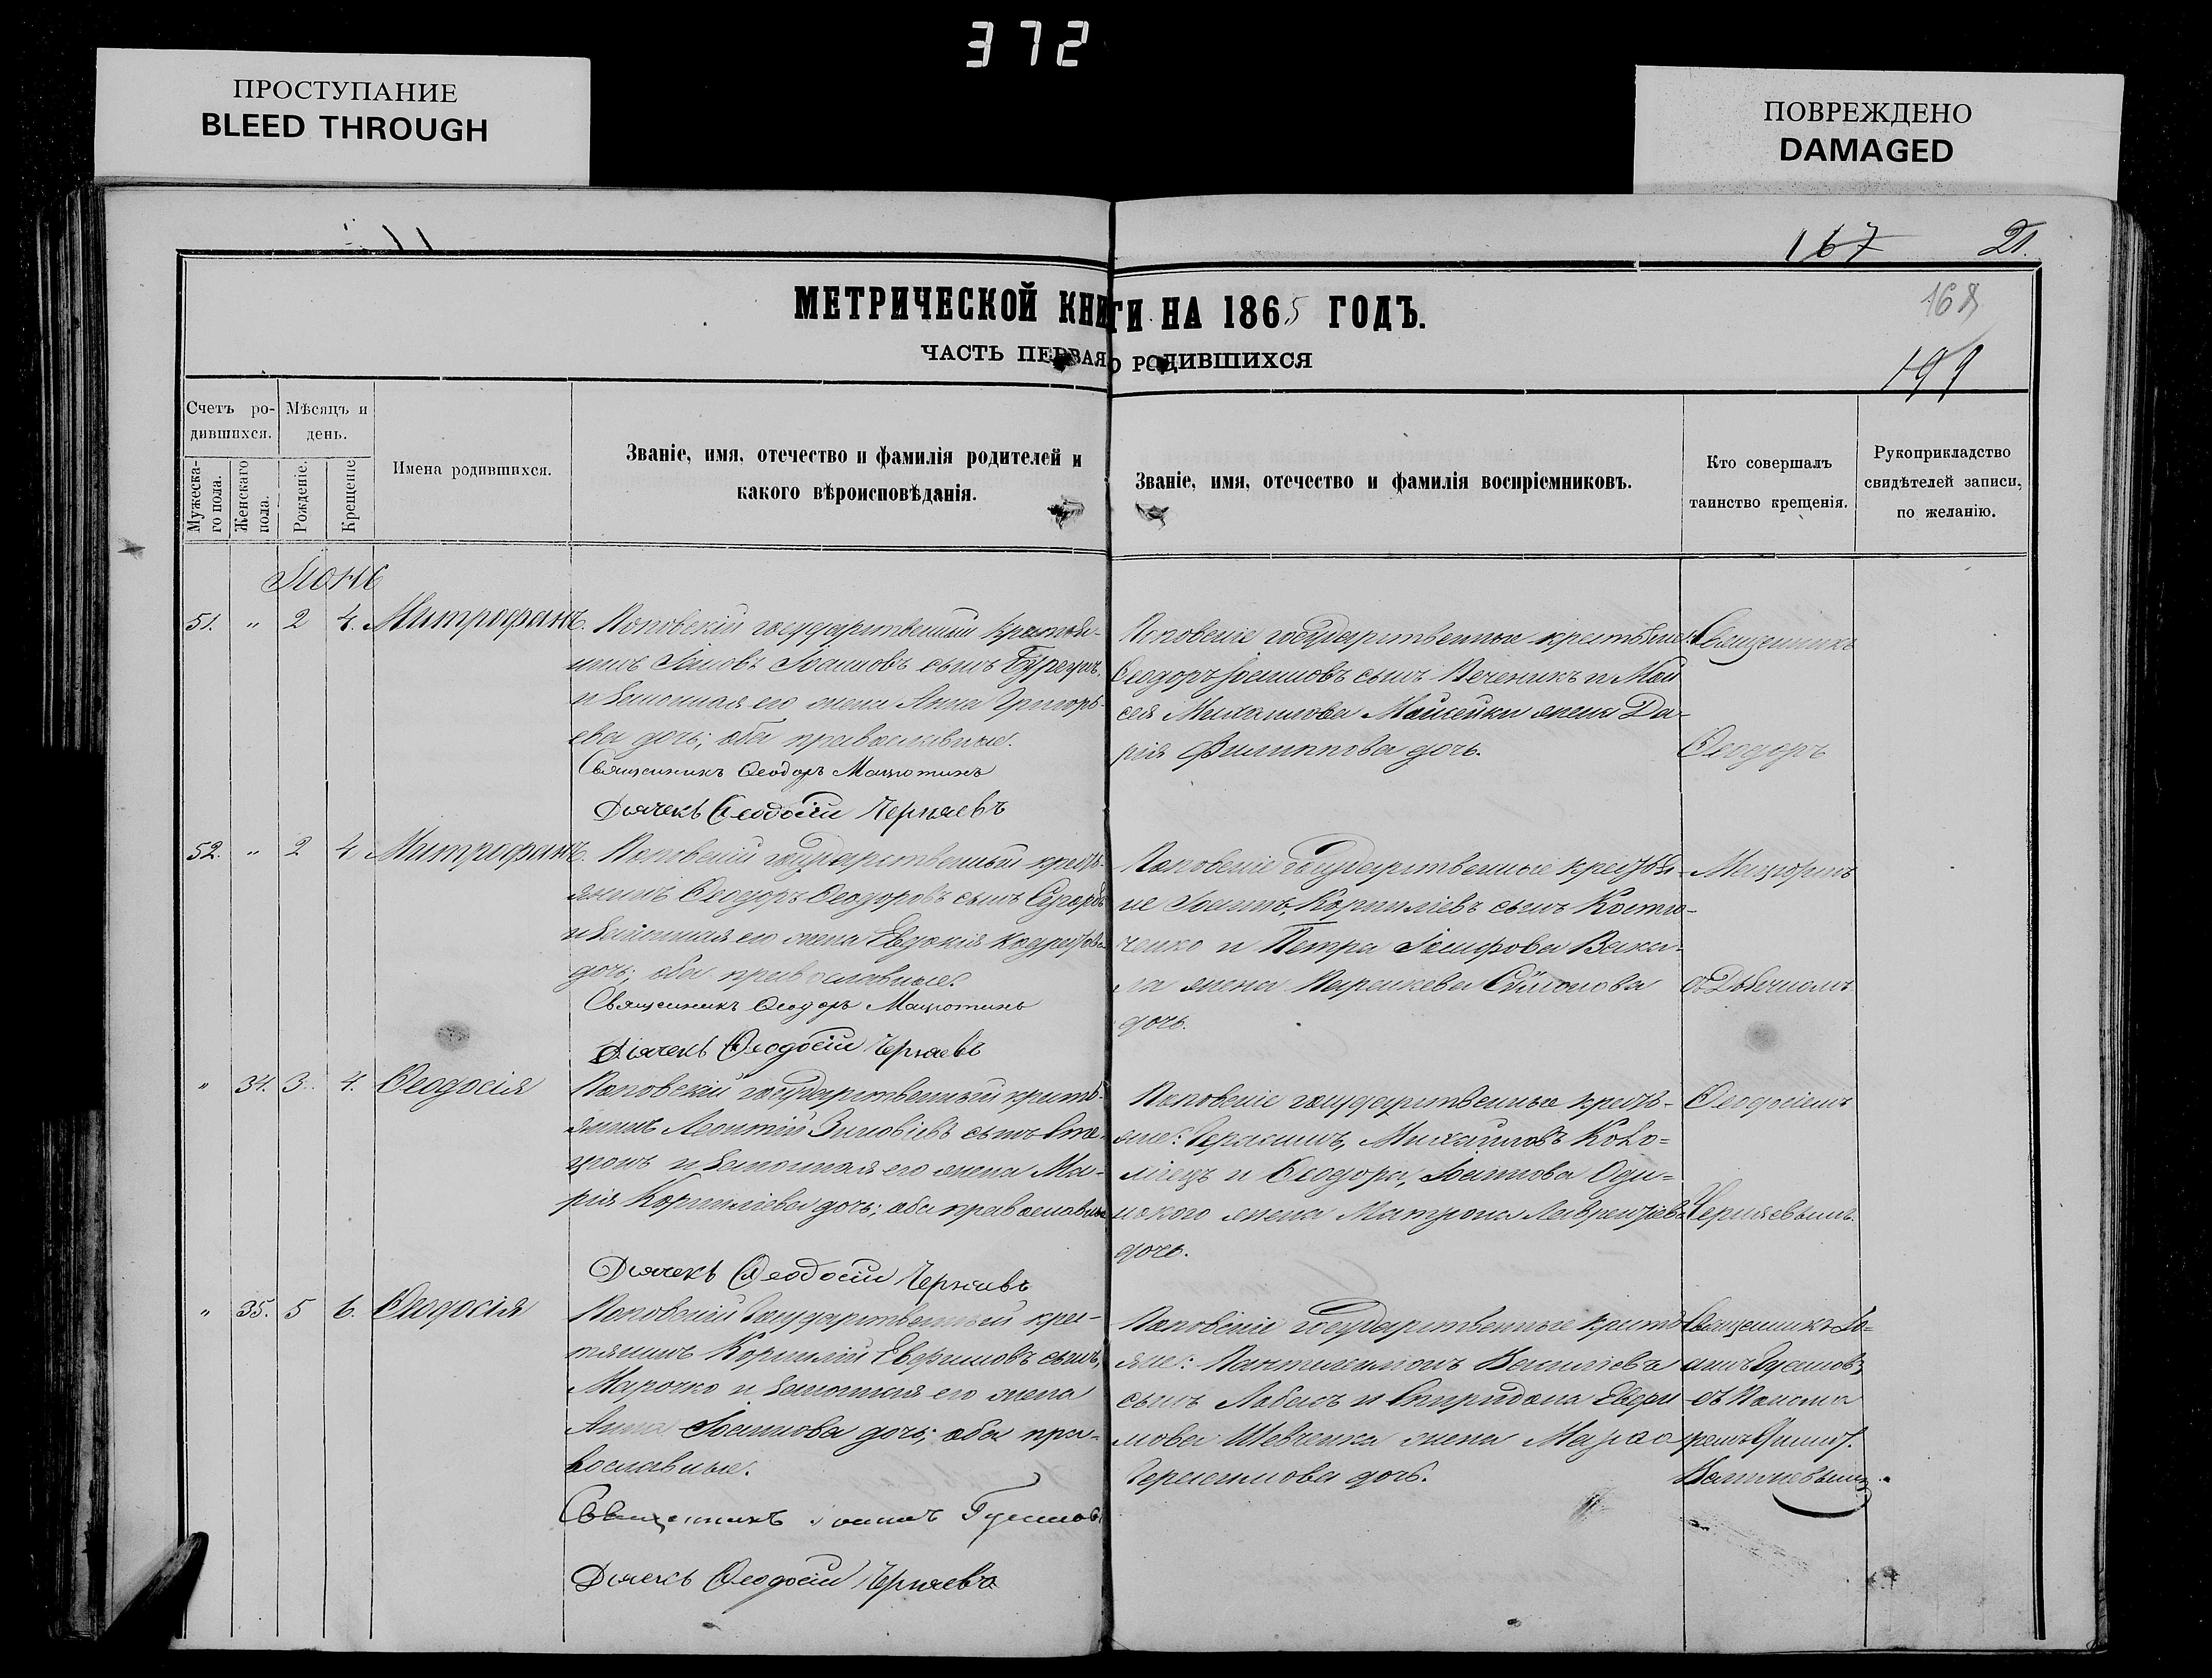 372
ПРОСТУПАНИЕ
BLEED THROUGH
ПОВРЕЖДЕНО
DAMAGED
167 21.
168
199
МЕТРИЧЕСКОЙ КНИГИ НА 1865 ГОДЪ.
ЧАСТЬ ПЕРВАЯ О РОДИВШИХСЯ
Счетъ ро-
дившихся.
Мужеска-
го пола.
Женскаго
пола.
Мѣсяцъ и
день.
Рожденіе.
Крещеніе
Имена родившихся.
Званіе, имя, отечество и фамилія родителей и
какого вѣроисповѣданія.
Званіе, имя, отечество и фамилія воспріемниковъ.
Кто совершалъ
таинство крещенія.
Рукоприкладство
свидѣтелей записи,
по желанію.
51. " 2 4. Митрофанъ.
Поповскій государственный крестья-
нинъ Іоановъ сынъ
и законная его жена Анна Григорь-
ева дочь; оба православные.
Священникъ Ѳеодоръ
Дьячекъ Ѳеодосій Черняевъ
Поповскіе государственные крестьяне:
Ѳеодоръ Іоанновъ сынъ Печеникъ и Мои
сея Михаилова жена Да-
рія Филиппова дочь.
Священникъ
Ѳеодоръ
52. " 2 4 Митрофанъ.
Поповскій государственный кресть-
янинъ Ѳеодоръ Ѳеодоровъ сынъ
и законная его жена Евдокія
дочь; оба православные.
Священникъ Ѳеодоръ
Дьячекъ Ѳеодосій Черняевъ
Поповскіе государственные крестья-
не Іоаннъ, Корниліевъ сынъ Костю-
ченко и Петра Іосифова Вака-
ла жена Параскева Симонова
дочь.
съ Дьячкомъ
" 34. 3. 4. Ѳеодосія
Поповскій государственный кресть-
янинъ Леонтій Зиновіевъ сынъ
и законная его жена Ма-
рія Корниліева дочь; оба православные
Дьячекъ Ѳеодосій Черняевъ
Поповскіе государственные кресть-
яне: Герасимъ, Михайловъ Коло-
міецъ и Ѳеодора, Іоаннова Оди-
нокого жена Матрона Лаврентіева
дочь.
Ѳеодосіемъ
Черняевымъ.
" 35. 5 6. Ѳеодосія
Поповскій Государственный крес-
тянинъ Корнилій Евфимовъ сынъ,
Марочко и законная его жена
Анна Іоаннова дочь; оба пра-
вославные.
Священникъ Іоаннъ
Дьячекъ Ѳеодосій Черняевъ
Поповскіе государственные кресть-
яне: Пантелимонъ Василіевъ
сынъ Лабасъ и Спиридона Евфи
мова Шевченка жена
Герасимова дочь.
Священникъ Іо-
аннъ
съ Понома